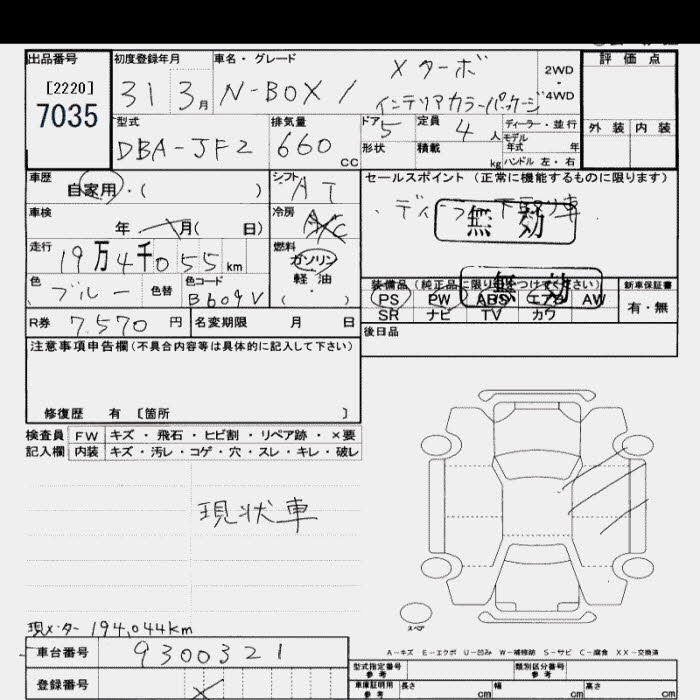 出品番号 初度登録年月 車名・グレード 評価点
[2220] 31 3月 N-BOX / Xターボ 2WD・4WD
7035 インテリアカラーパッケージ
型式 排気量 ドア 定員 ディーラー・並行 外装 内装
DBA-JF2 660cc 5 4人 モデル年式 年
形状 積載 kg ハンドル 左・右
車歴 シフト セールスポイント (正常に機能するものに限ります)
自家用・( ) AT ・ディーラー下取り車
車検 年 月( 日) 冷房 A/C 無効
走行 19万4千055km 燃料 ガソリン
軽・油
・( )
色 ブルー 色替 色コード B609V
装備品 (純正品に限り○をつけてください) 新車保証書
無効
PS PW ABS エアB AW 有・無
SR ナビ TV カワ
R券 7,570円 名変期限 月 日 後日品
注意事項申告欄(不具合内容等は具体的に記入して下さい)
修復歴 有 [箇所 ]
検査員 FW キズ・飛石・ヒビ割・リペア跡・×要
記入欄 内装 キズ・汚レ・コゲ・穴・スレ・キレ・破レ
現状車
スペア
現メーター 194,044km
A-キズ E-エクボ U-凹み W-補修跡 S-サビ C-腐食 XX-交換済
車台番号 9300321
型式指定番号 参考 類別区分番号 参考
登録番号
車庫証明用 参考 長さ cm 幅 cm 高さ cm